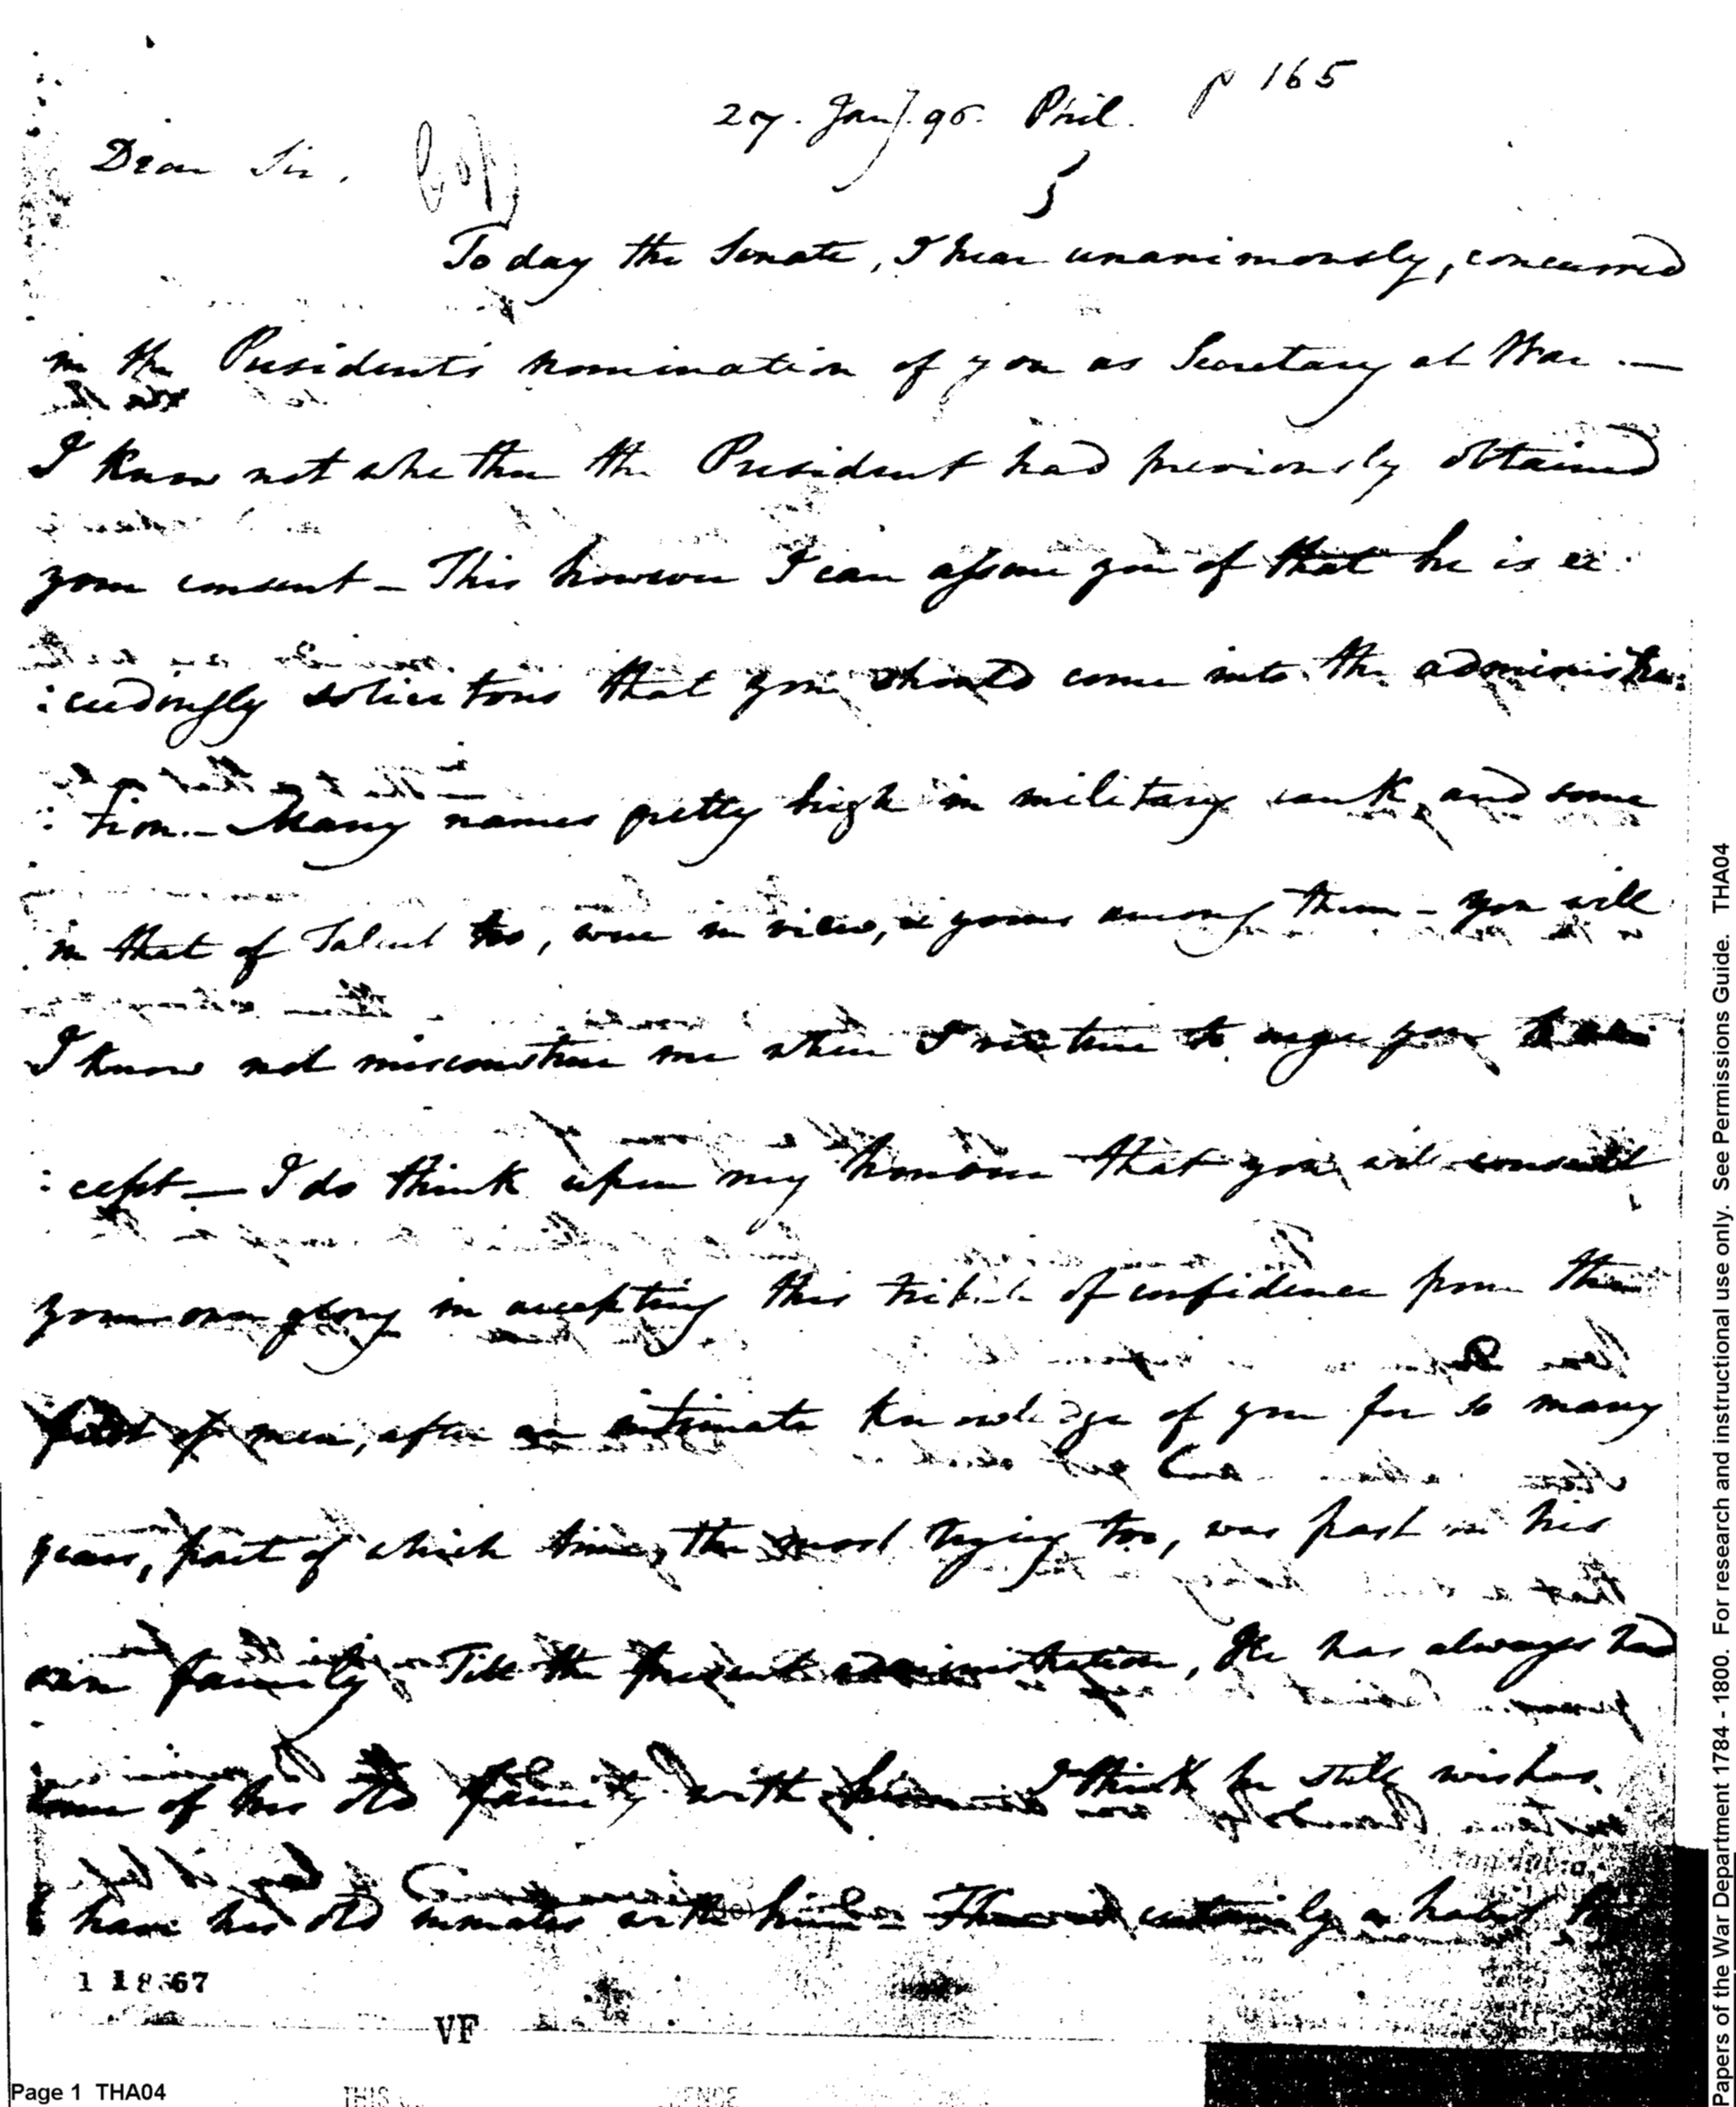 p 165
27. Jany. 96. Phil.
Dear Sir, Copy
To day the Senate, I hear unanimously, concurred
in the President's nomination of you as Secretary at War. —
I know not whether the President had previously obtained
your consent — This however I can assure you of that he is ex:
:ceedingly solicitous that you should come into the administra:
:tion. — Many names pretty high in military rank, and some
in that of Talent too, were in view, & yours among them — You will
I know not misconstrue me when I venture to urge you to
:cept — I do think upon my honour that you will consult
your own glory in accepting this tribute of confidence from the
first of men, after an intimate knowledge of you for so many
years, part of which time, the most trying too, was past in his
own family Till the present administration, He has always had
some of his old family with him I think he still wishes
have his old inmates with him — There is certainly a habit
1 1867
VF
Page 1 THA04
THIS
Papers of the War Department 1784 - 1800. For research and instructional use only. See Permissions Guide. THA04